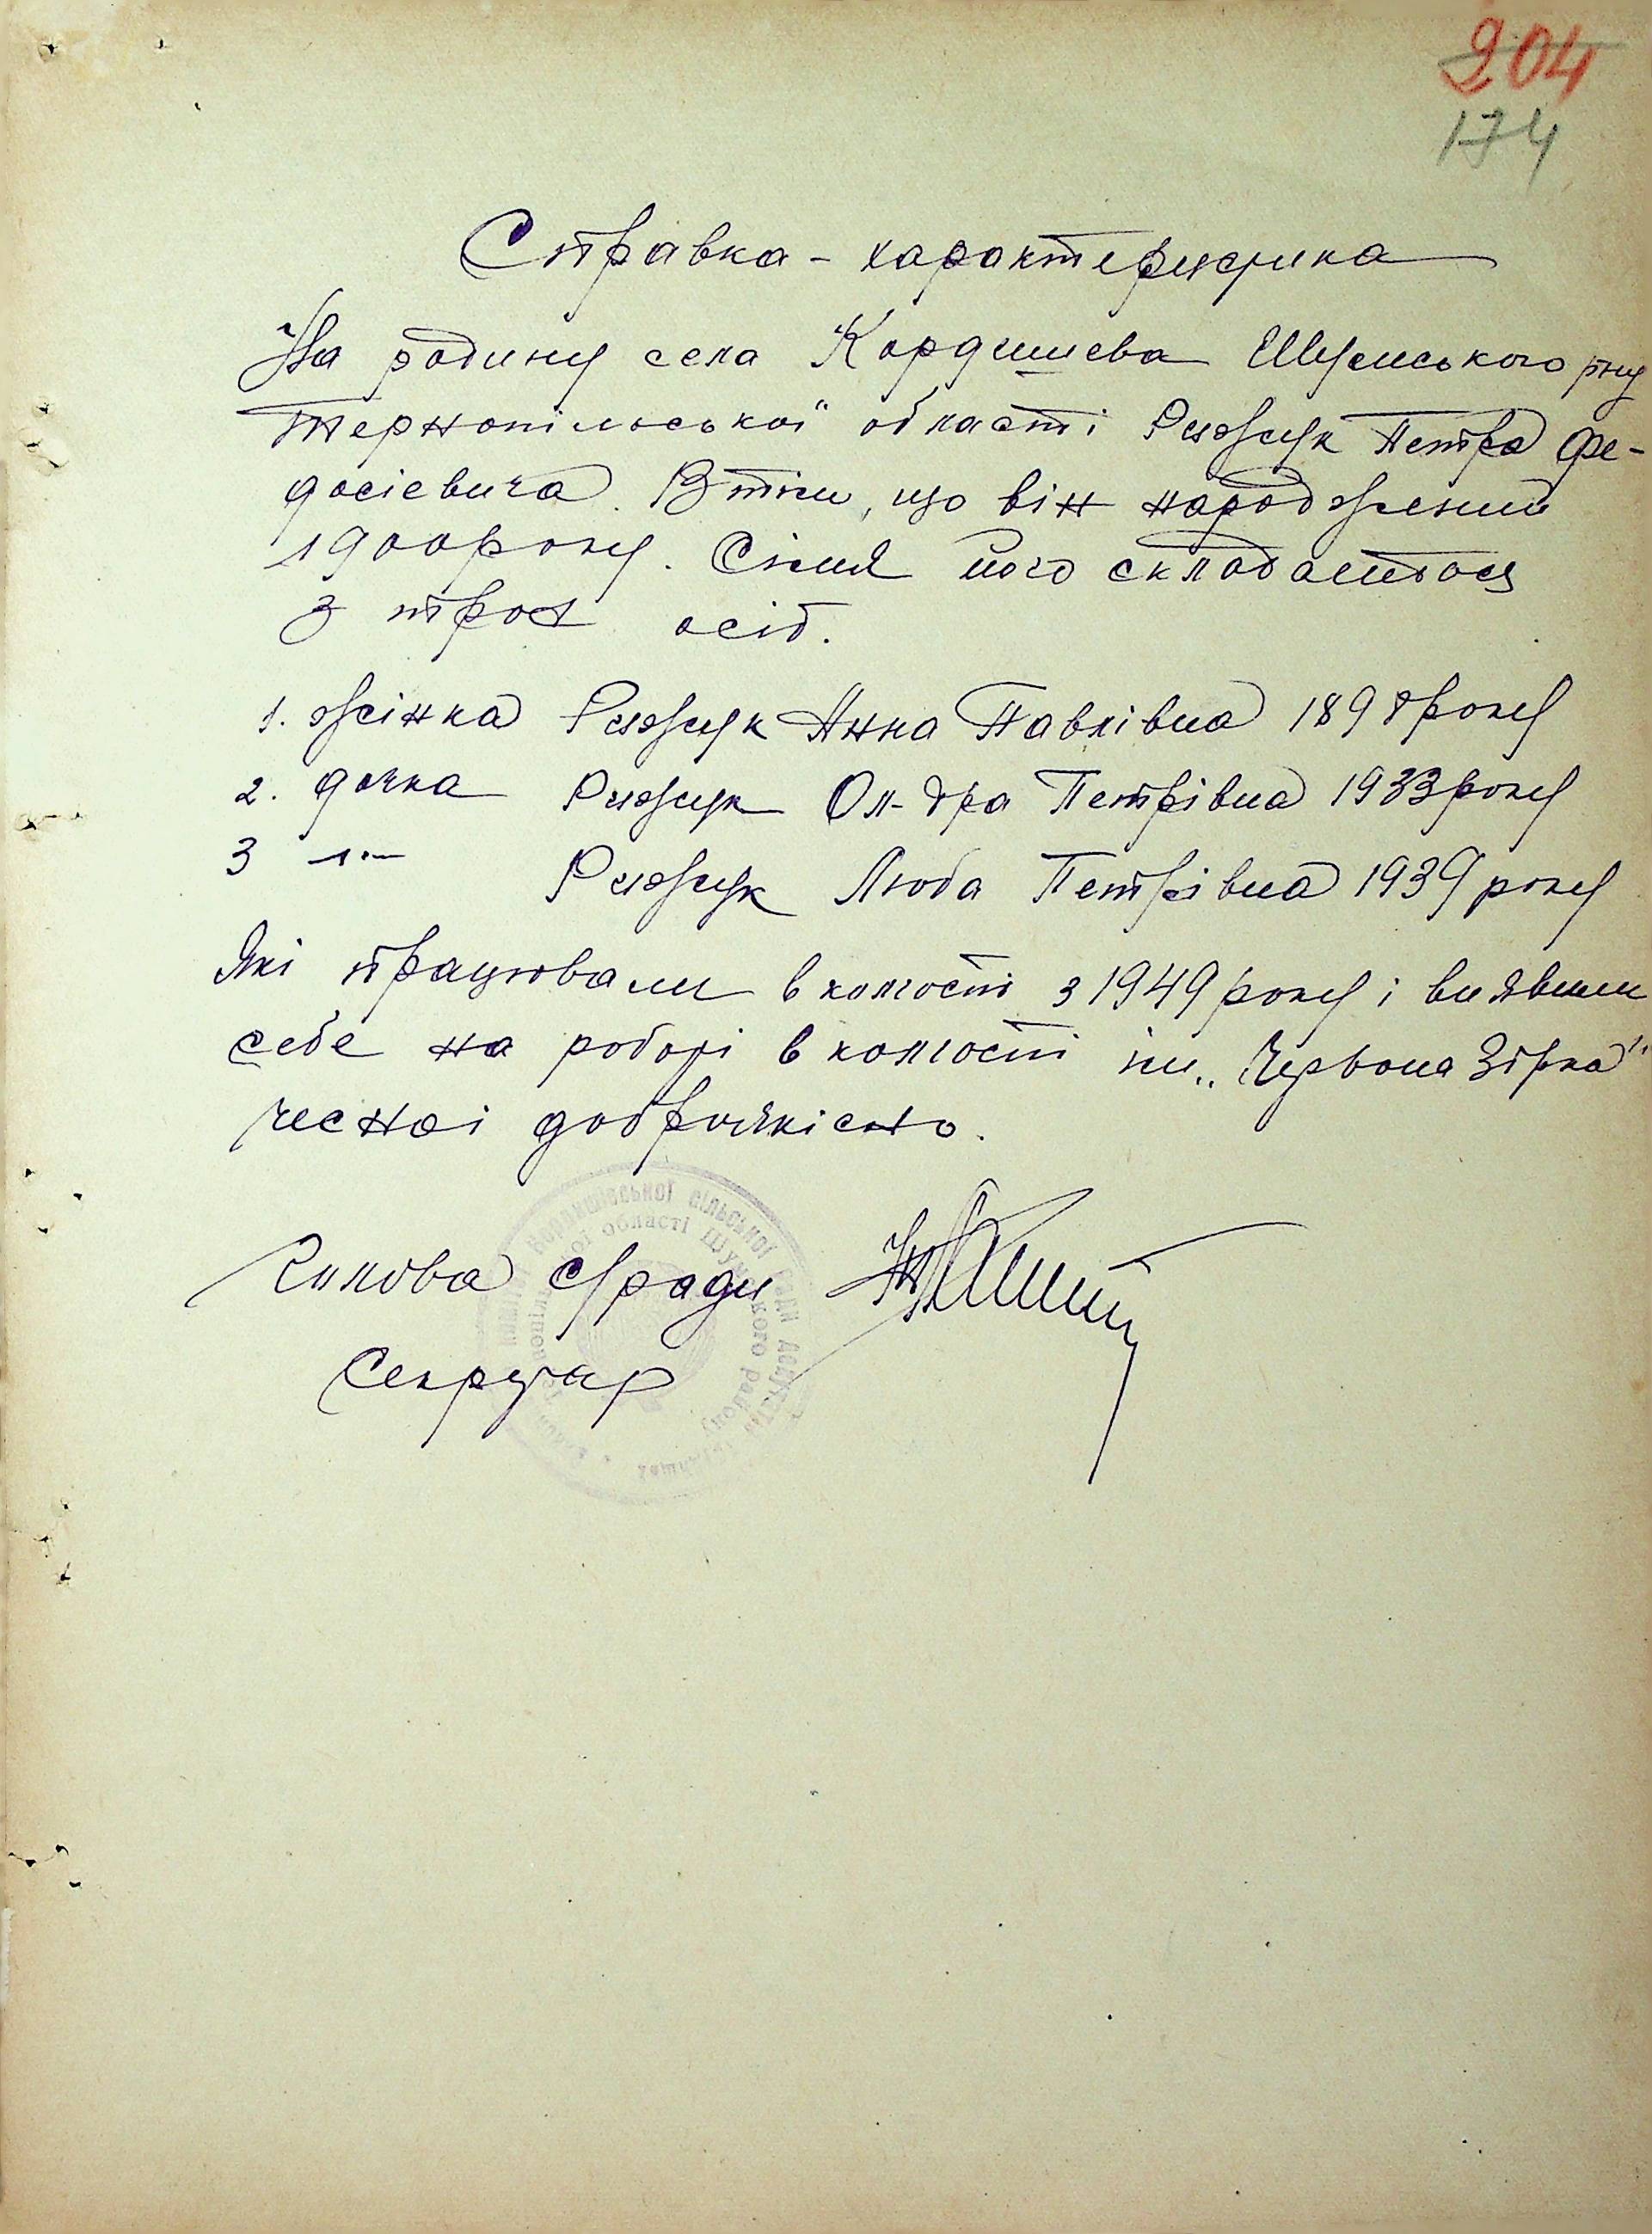 204
174
Справка - характеристика
На родину села Кордишева Шумського р-ну
Тернопільської області Рижук Петра Фе-
досієвича. В тім, що він народжений
1900 року. Сімя його складається
з трох осіб.
1. жінка Рижук Анна Павлівна 1898 року
2. дочка Рижук Ол-дра Петрівна 1933 року
3 -"- Рижук Люба Петрівна 1939 року
Які працювали в колгості з 1949 року і виявили
себе на роботі в колгості ім. „Червона Зірка"
чесно і доброякісно.
Голова с/ради
Секретар
Кордишівської сільської ради депутатів
області Шумського району